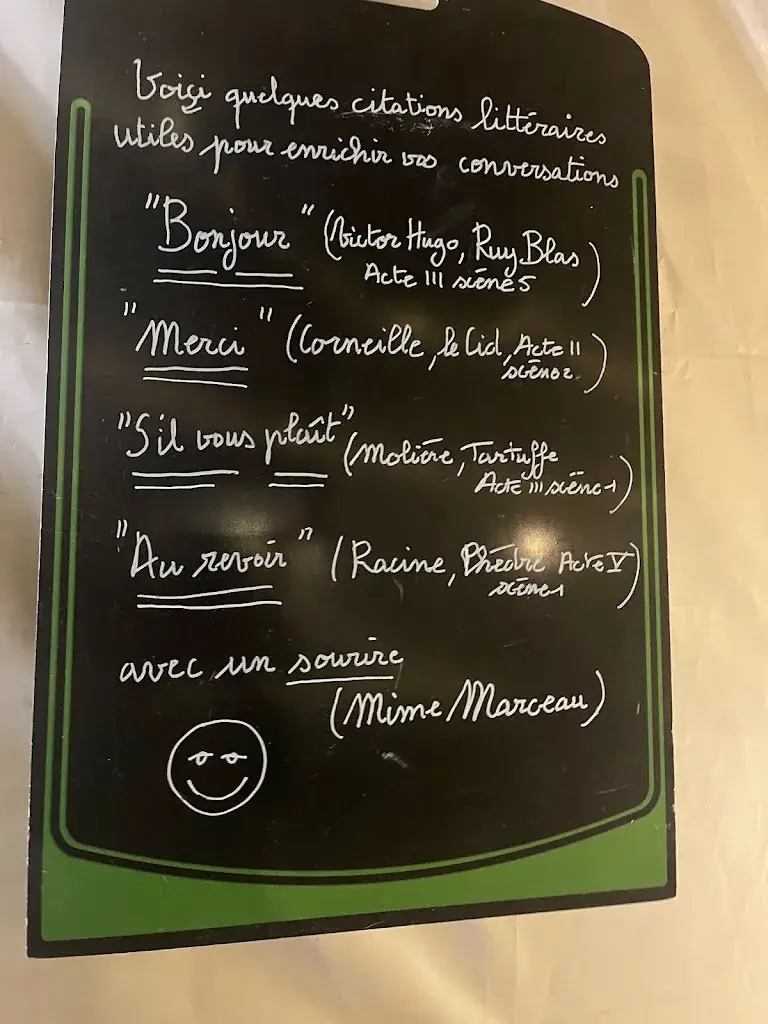 Voiçi quelques citations littéraires
utiles pour enrichir vos conversations
"Bonjour" (Victor Hugo, Ruy Blas
Acte III scène 5)
"Merci" (Corneille, le Cid, Acte II
scène 2)
"S'il vous plaît" (Molière, Tartuffe
Acte III scène 1)
"Au revoir" (Racine, Phèdre Acte V
scène 1)
avec un sourire
(Mime Marceau)